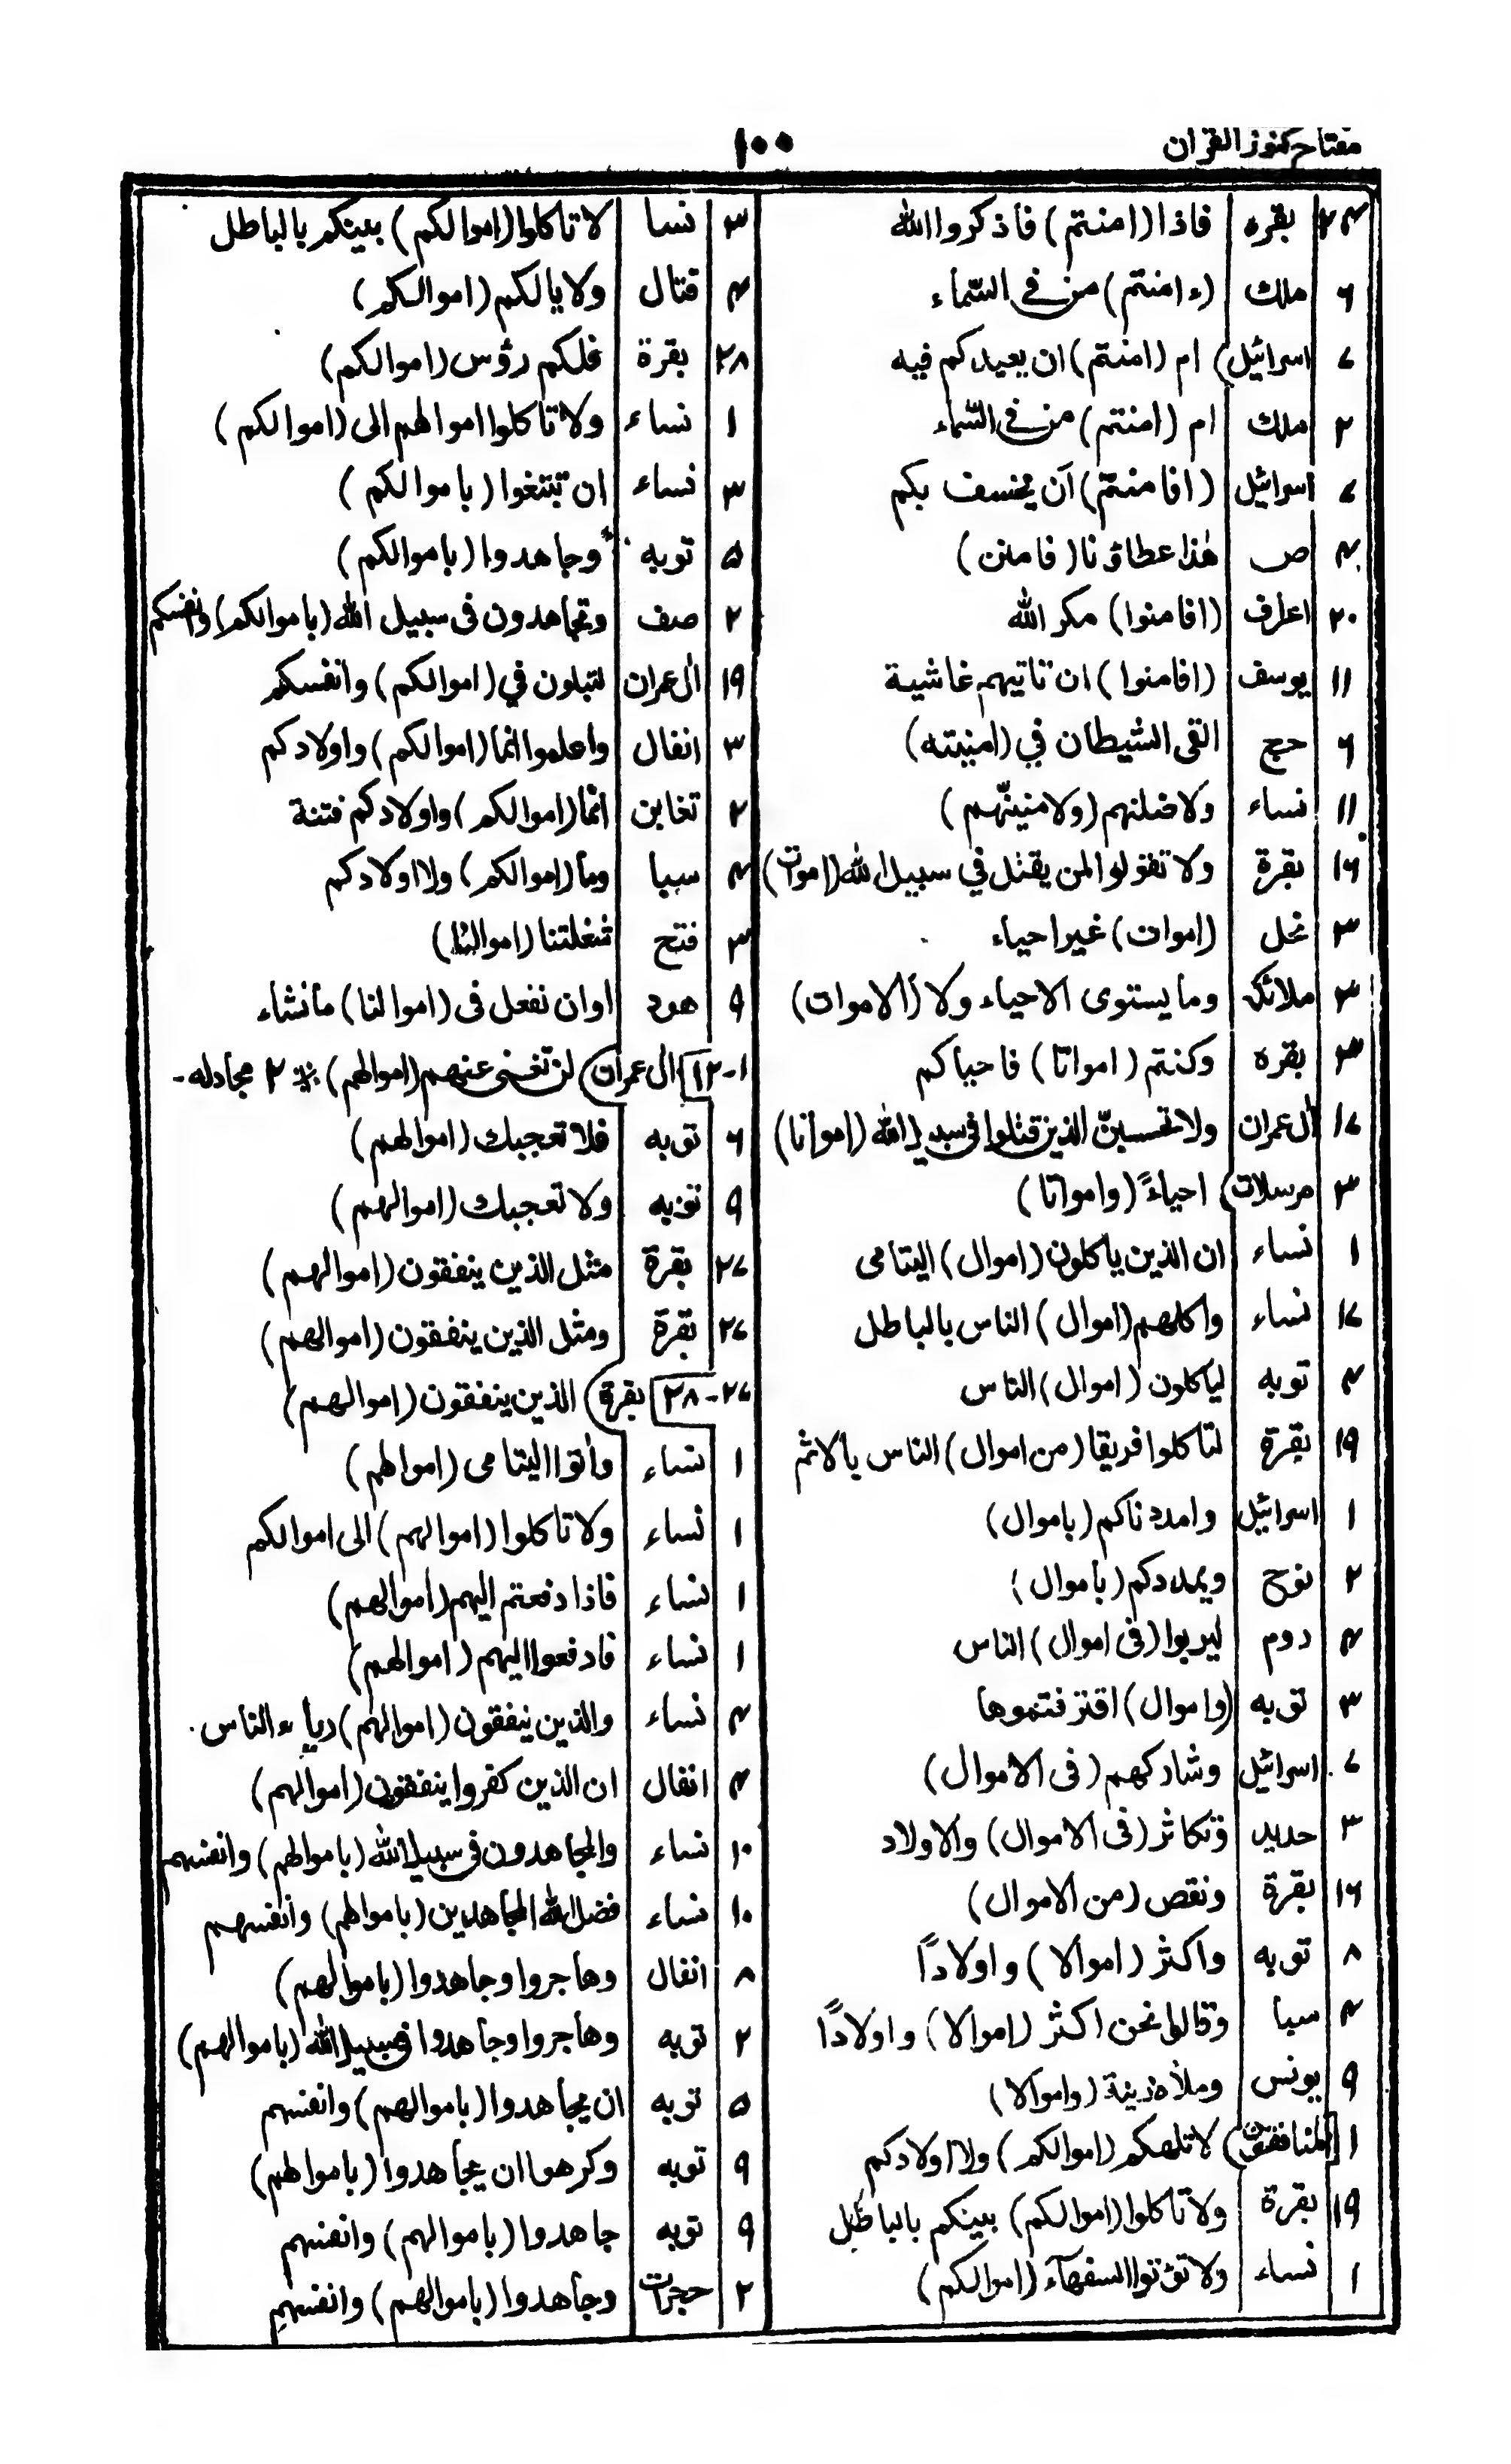 مفتاح كنوز القران
۱۰۰
۲۴ بقره فاذا (امنتم) فاذكروا الله
۶ ملك (ء امنتم) من في السّماء
۷ اسرائيل ام (امنتم) ان يعيدكم فيه
۲ ملك ام (امنتم) من في السّماء
۷ اسرائيل (افامنتم) ان يخسف بكم
۴ ص هٰذا عطاؤنا (فامنن)
۲۰ اعراف (افامنوا) مكر الله
۱۱ يوسف (افامنوا) ان تاتيهم غاشية
۶ حج القى الشيطان في (امنيته)
۱۱ نساء ولاضلنهم (ولامنينّهم)
۱۶ بقرة ولا تقولوا لمن يقتل في سبيل الله (اموات)
۳ نحل (اموات) غير احياء
۳ ملائكه وما يستوى الاحياء ولا (الاموات)
۳ بقره وكنتم (امواتا) فاحياكم
۱۷ اٰل عمران ولا تحسبنّ الذين قتلوا فى سبيل الله (امواتا)
۳ مرسلات احياءً (وامواتا)
۱ نساء ان الذين ياكلون (اموال) اليتامى
۱۷ نساء واكلهم (اموال) الناس بالباطل
۴ توبه لياكلون (اموال) الناس
۱۹ بقرة لتاكلوا فريقا (من اموال) الناس بالاثم
۱ اسرائيل وامددناكم (باموال)
۲ نوح ويمددكم (باموال)
۴ روم ليربوا (فى اموال) الناس
۳ توبه (واموال) اقترفتموها
۷ اسرائيل وشاركهم (فى الاموال)
۳ حديد وتكاثر (فى الاموال) والاولاد
۱۶ بقرة ونقص (من الاموال)
۸ توبه واكثر (اموالا) واولادًا
۴ سبأ وقالوا نحن اكثر (اموالا) واولادًا
۹ يونس وملأه زينة (واموالا)
۱ المنافقون لا تلهكم (اموالكم) ولا اولادكم
۱۹ بقرة ولا تاكلوا (اموالكم) بينكم بالباطل
۱ نساء ولا تؤتوا السفهآء (اموالكم)
۳ نسا لا تاكلوا (اموالكم) بينكم بالباطل
۴ قتال ولا يالكم (اموالكم)
۲۸ بقرة فلكم رؤس (اموالكم)
۱ نساء ولا تاكلوا اموالهم الى (اموالكم)
۳ نساء ان تبتغوا (باموالكم)
۵ توبه وجاهدوا (باموالكم)
۲ صف وتجاهدون فى سبيل الله (باموالكم) وانفسكم
۱۹ اٰل عمران لتبلون في (اموالكم) وانفسكم
۳ انفال واعلموا انما (اموالكم) واولادكم
۲ تغابن انّما (اموالكم) واولادكم فتنة
۴ سبا وما (اموالكم) ولا اولادكم
۳ فتح شغلتنا (اموالنا)
۹ هود اوان نفعل فى (اموالنا) ما نشاء
۱-۱۲ اٰل عمران لن تغنى عنهم (اموالهم) ۲ مجادله-
۶ توبه فلا تعجبك (اموالهم)
۹ توبه ولا تعجبك (اموالهم)
۲۷ بقرة مثل الذين ينفقون (اموالهم)
۲۷ بقرة ومثل الذين ينفقون (اموالهم)
۲۷-۲۸ بقرة الذين ينفقون (اموالهم)
۱ نساء واٰتوا اليتامى (اموالهم)
۱ نساء ولا تاكلوا (اموالهم) الى اموالكم
۱ نساء فاذا دفعتم اليهم (اموالهم)
۱ نساء فادفعوا اليهم (اموالهم)
۴ نساء والذين ينفقون (اموالهم) رياء الناس
۴ انفال ان الذين كفروا ينفقون (اموالهم)
۱۰ نساء والمجاهدون فى سبيل الله (باموالهم) وانفسهم
۱۰ نساء فضل الله المجاهدين (باموالهم) وانفسهم
۸ انفال وهاجروا وجاهدوا (باموالهم)
۲ توبه وهاجروا وجاهدوا فى سبيل الله (باموالهم)
۵ توبه ان يجاهدوا (باموالهم) وانفسهم
۹ توبه وكرهوا ان يجاهدوا (باموالهم)
۹ توبه جاهدوا (باموالهم) وانفسهم
۲ حجرات وجاهدوا (باموالهم) وانفسهم